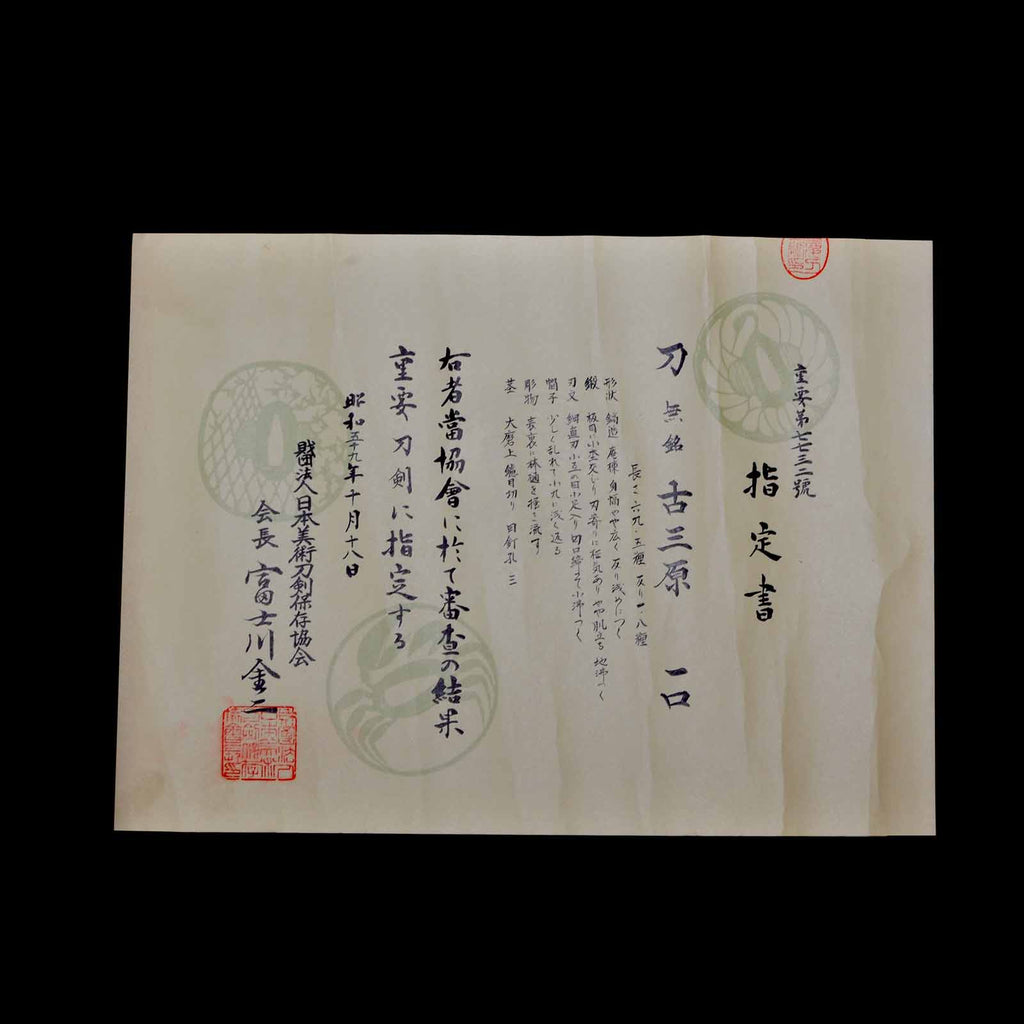 重要第七七三二號
指定書
刀 無銘 古三原 一口
長さ 六九・五糎 反り 一・八糎
形状 鎬造 庵棟 身幅やや広く 反り浅めにつく
鍛 板目に小杢交じり 刃寄りに柾気あり やや肌立ち 地沸つく
刃文 細直刃 小互の目 小足入り 匂口締まりて小沸つく
帽子 少しく乱れて小丸に浅く返る
彫物 表裏に棒樋を掻き流す
茎 大磨上 鑢目切り 目釘孔 三
右者當協會に於て審査の結果
重要刀剣に指定する
昭和五十九年十月十八日
財団法人日本美術刀剣保存協会
会長 富士川金二